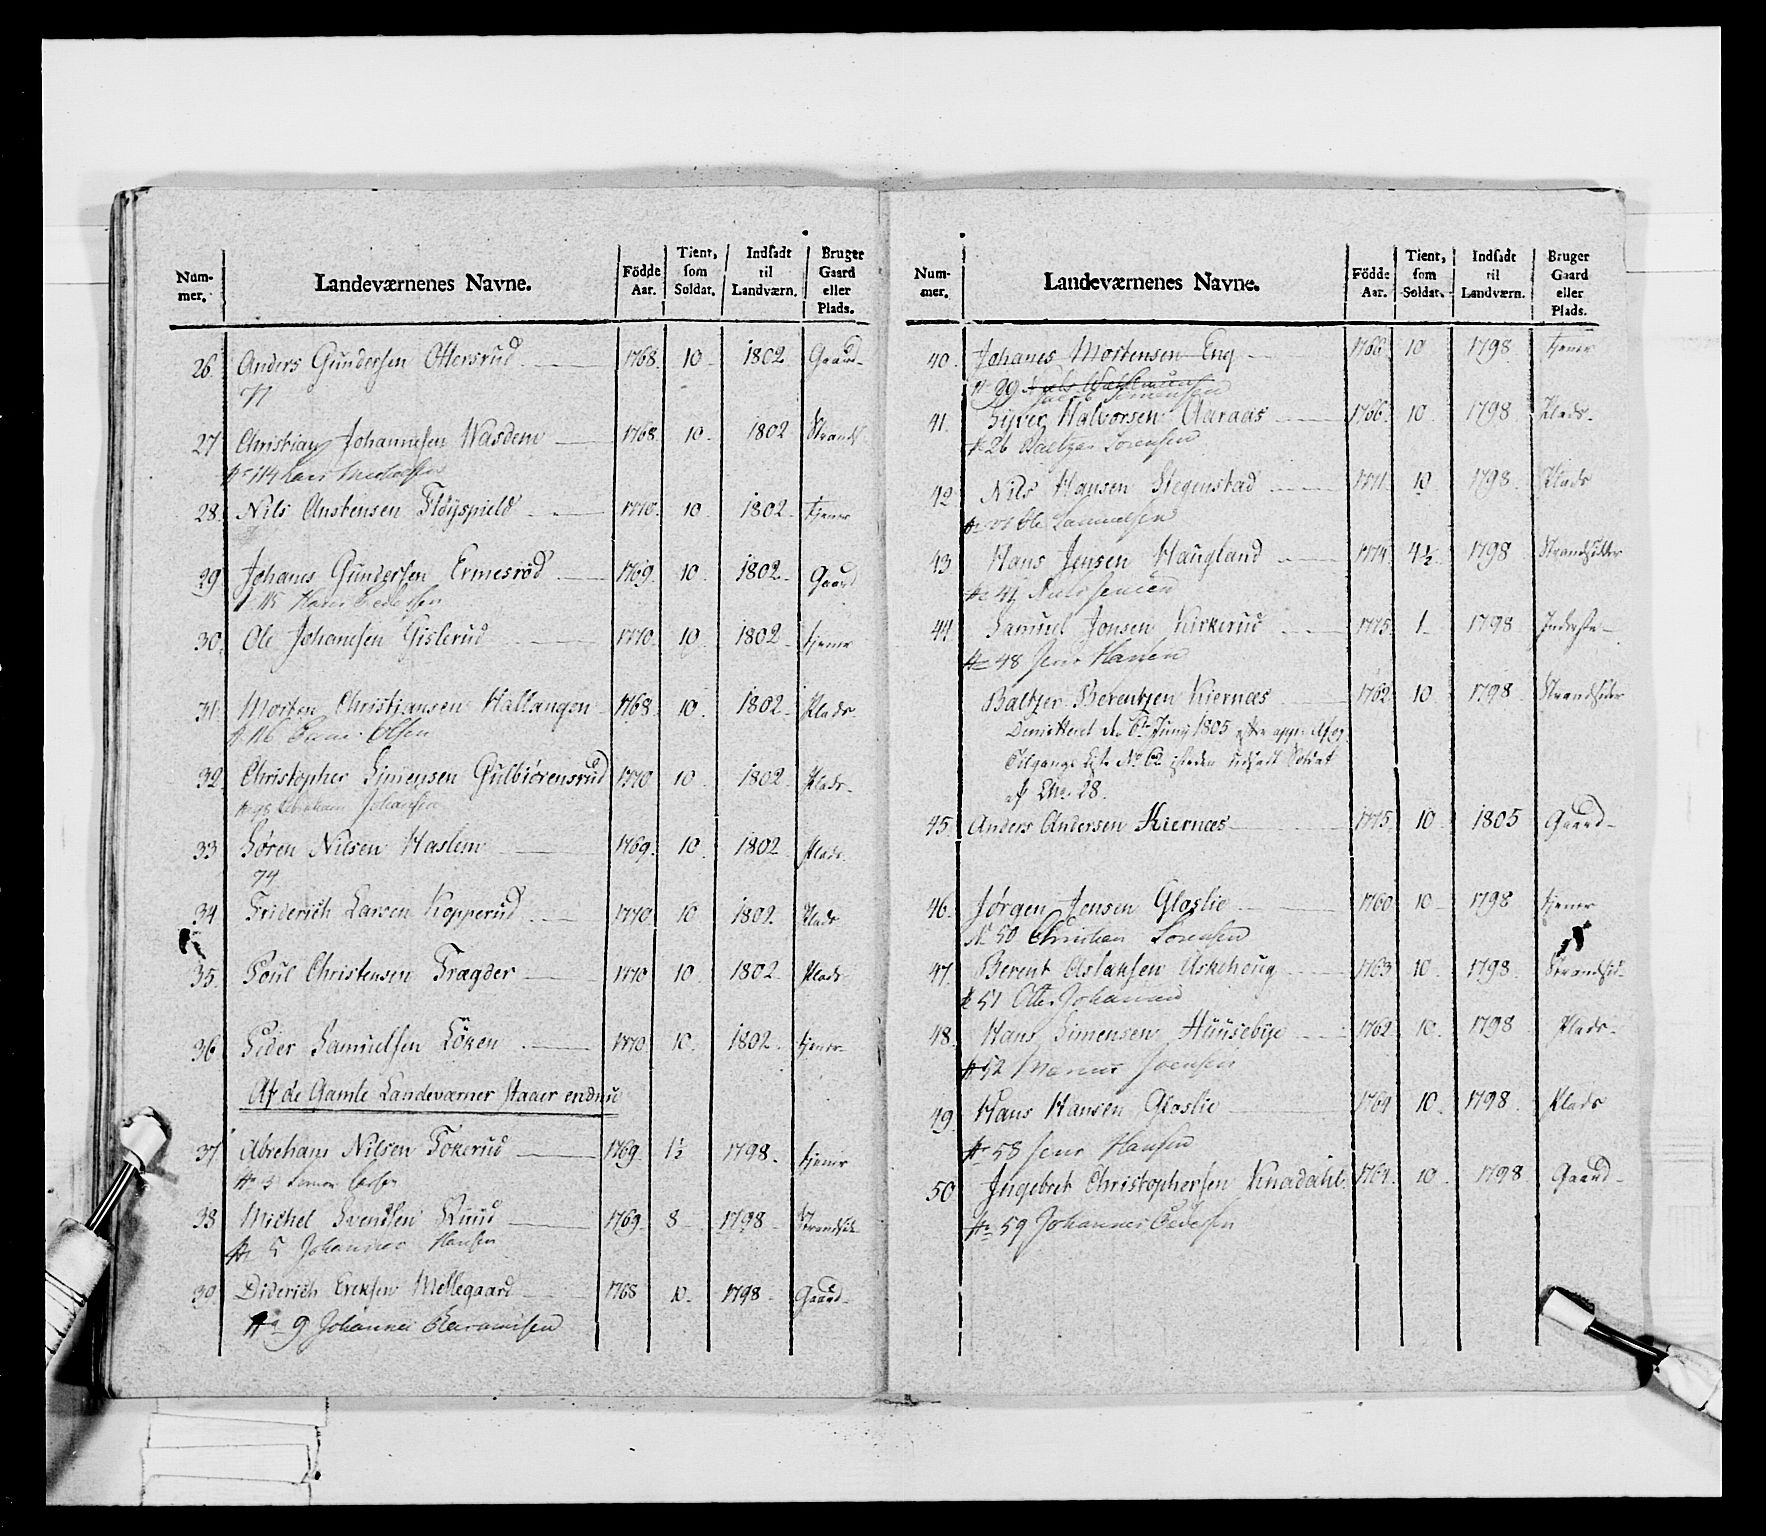 Num-
mer.
Landeværnenes Navne.
Födde
Aar.
Tient,
som
Soldat.
Indsadt
til
Landværn.
Bruger
Gaard
eller
Plads.
26. Anders Gundersen Ottersrud 1768. 10 1802 Gaard
77
27 Christian Johannesen Wasdem 1768. 10. 1802
No 114 Lars
28. Nils Anstensen Flöyspield 1770. 10 1802. tjener
29 Johanes Gundersen Ermesröd 1769. 10. 1802. Gaard
115 Hans Pedersen
30. Ole Johanesen Gislerud 1770. 10. 1802. tjener
31. Morten Christiansen Hallangen 1768. 10. 1802. Plads
No 116 Olsen
32. Christopher Simensen Gulbiörensrud 1770 10. 1802 Plads
Johansen
33 Sören Nilsen Haslem 1769. 10. 1802 Plads
74
34 Friderich Larsen Kopperud 1770 10 1802. Plads
35. Poul Christensen Trægder 1770 10. 1802 Plads
36 Peder Samuelsen Löken 1770 10. 1802. tjener
Af de Gamle Landeværner staaer endnu
37 Abreham Nilsen Fokerud 1769. 1½ 1798. tjener
38 Michel Svendsen Ruud 1769. 8 1798 Strandsid.
No 5 Johannes Hansen
39. Diderich Eriksen Mellegaard 1768 10. 1798 Gaard
No 9 Johannes
Num-
mer.
Landeværnenes Navne.
Födde
Aar.
Tient,
som
Soldat.
Indsadt
til
Landværn.
Bruger
Gaard
eller
Plads.
40. Johanes Mortensen Eng 1766. 10 1798. tjener
No 99
Simensen
41. Syver Halvorsen Aaraas 1766. 10 1798 Plads
No 26 Baltzer Sörensen
42. Nils Hansen Stegenstad 1771. 10 1798. Plads
Ole Samuelsen
43 Hans Jensen Haugland 1774. 4½ 1798 Strandsidder
No 41 Niels Jensen
44 Samuel Jonsen Kirkerud 1775. 1 1798 Inderste
No 48 Jens Hansen
Baltzer Berentzen Kiernæs 1762. 10 1798. Strandsider
Dimitteret den 6te Juny 1805
Tilgangs Liste No 62 isteden indsadt Soldat
af 28.
45. Anders Andersen Kiernæs 1775. 10 1805 Gaard
46. Jörgen Jensen Glaslie 1760 10 1798 tjener
No 50 Christian Sörensen
47. Berent Aslaksen Askehoug 1763 10. 1798. Strandsid.
No 51 Otter Johannes
48. Hans Simensen Huusebye 1762 10. 1798 Plads
No 52
49. Hans Hansen Glaslie 1764 10. 1798. Plads
No 58 Jens Hansen
50 Ingebret Christophersen Knadahl 1764. 10. 1798 Gaard
No 59 Johannes Pedersen